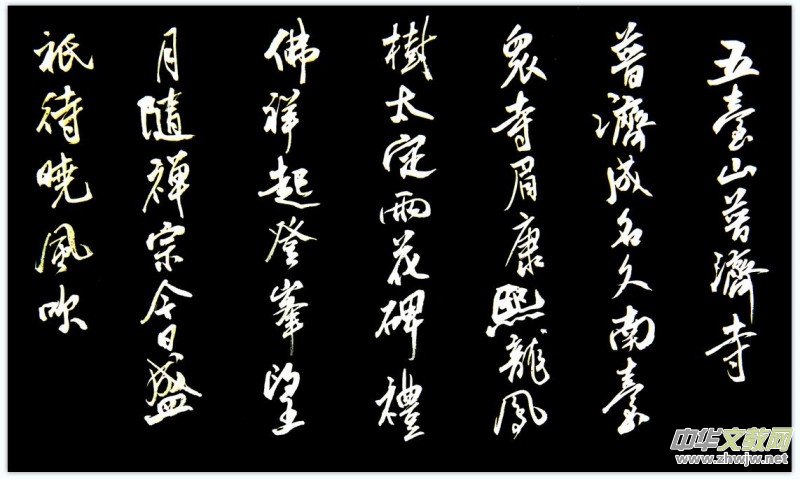 五臺山普濟寺
普濟成名久南臺
眾寺眉康熙龍鳳
樹太定雨花碑禮
佛祥起登峯望
月隨禪宗今日盛
祇待曉風吹
中华文教网
www.zhwjw.net